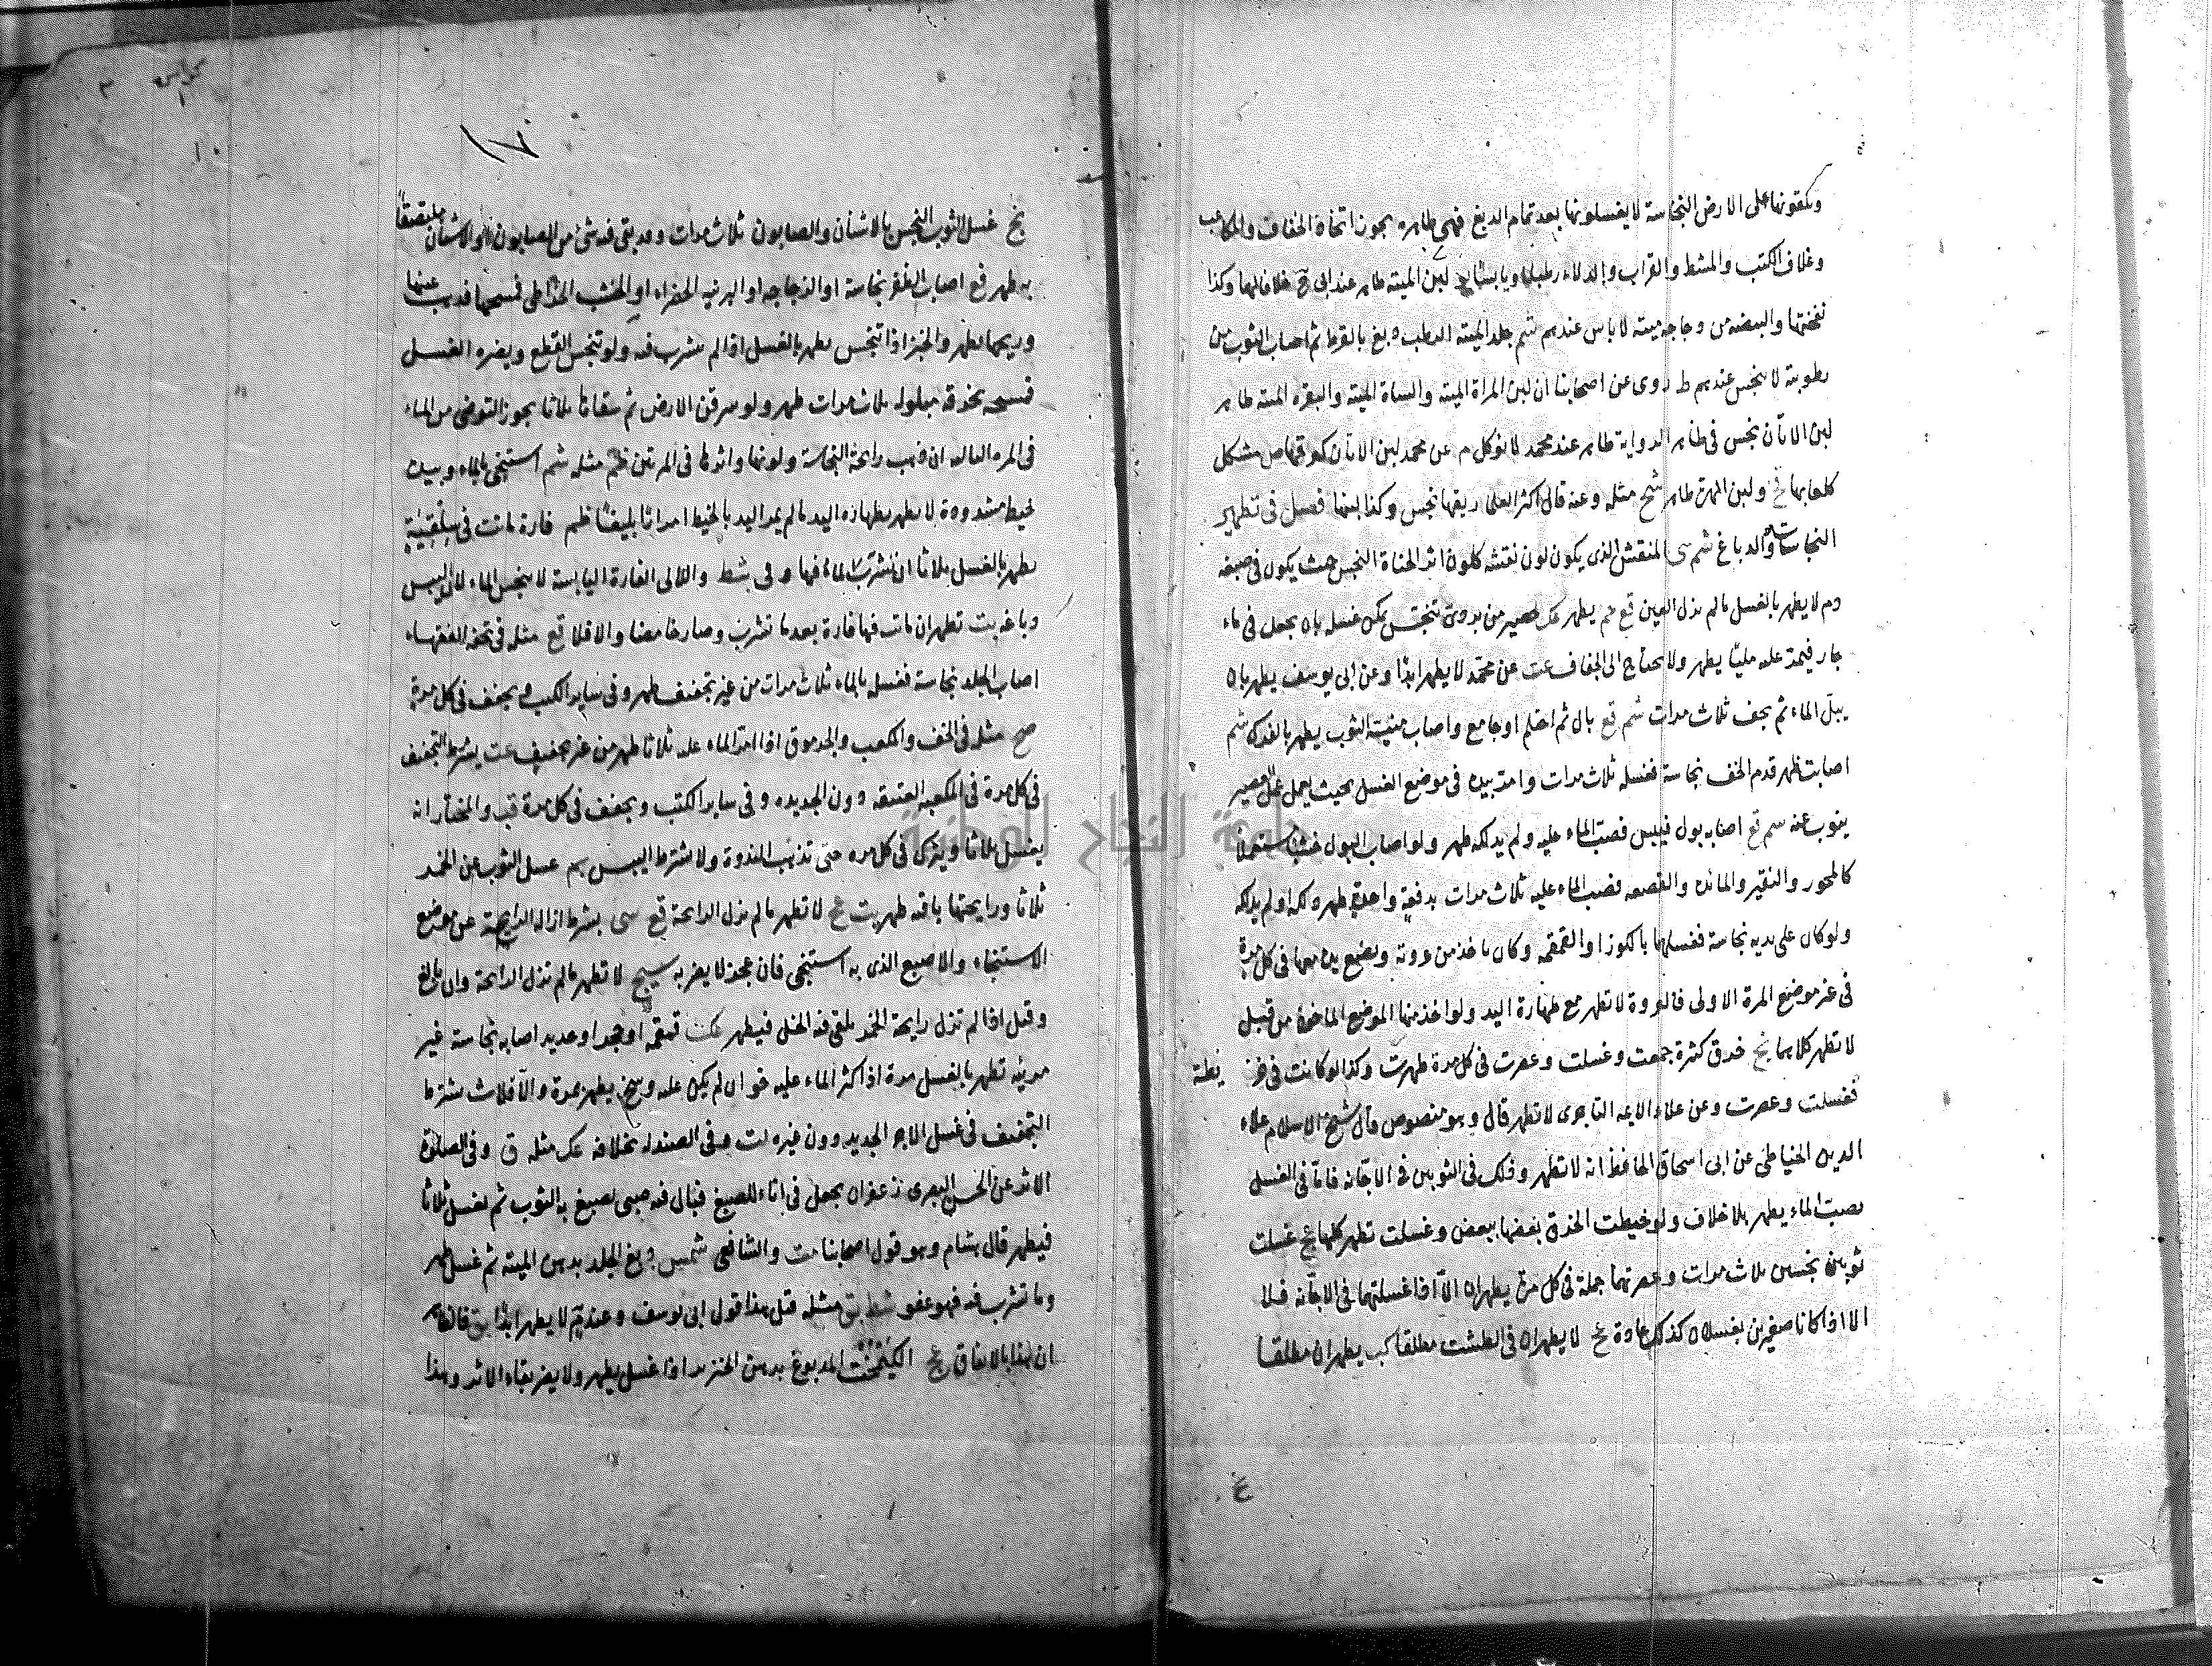 ويلقونها على الارض النجاسة لا يغسلونها بعد تمام الدبغ فهي طاهره يجوز اتخاذ الخفاف والمكاعب
وغلاف الكتب والمشط والقراب والدلاء رطبا ويابسا لبن الميتة طاهر عند ابي ح خلافا لهما وكذا
نفحتها والبيضه من دجاجه ميته لا باس عندهم شم جلد الميته الرطب دبغ بالقرظ ثم اصاب الثوب من
رطوبته لا ينجس عندهم ط روى عن اصحابنا ان لبن المراة الميته والشاة الميته والبقره الميته طاهر
لبن الاتان نجس في ظاهر الرواية طاهر عند محمد لا يوكل م عن محمد لبن الاتان مشكل
كلعابها ولبن الهرة طاهر شح مثله وعنه قال اكثر العلماء ريقها نجس وكذا لبنها فصل في تطهير
النجاسات والدباغ شم سى المنقش الذى يكون لون نقشه كلون اثر الحناة النجس حيث يكون في صبغه
دم لا يطهر بالغسل مالم يزل العين قع حم يطهر عك حصير من بردى تنجس يمكن غسله بان يجعل في ماء
جار فيمر عليه مليا يطهر ولا يحتاج الى الجفاف عت عن محمد لا يطهر ابدا وعن ابي يوسف يطهر بان
يبل الماء ثم يجف ثلاث مرات شم قع بال ثم احتلم او جامع واصاب منيته الثوب يطهر بالفرك شم
اصابت ظهر قدم الخف نجاسة فغسله ثلاث مرات وامر بيده في موضع الغسل بحيث يعمل عمل
ينوب عنه سم قع اصابه بول فيبس فصب الماء عليه ولم يدلكه طهر ولو اصاب البول خشبا مستعملا
كالمحور والنقير والمائده والقصعه فصب الماء عليه ثلاث مرات بدفعة واحدة طهر وكذا لو لم يدلكه
ولو كان على يديه نجاسة فغسلهما بالكوز او القمقمه وكان ياخذ من عروته ويضع يده معها في كل مرة
في غير موضع المرة الاولى فالعروة لا تطهر مع طهارة اليد ولو اخذ منها الموضع الماخوذ من قبل
لا تطهر كلاهما نج خرق كثرة جمعت وغسلت وعصرت في كل مرة طهرت وكذا لو كانت في خر يطة
فغسلت وعصرت وعن علاء الايمه التاجرى لا تطهر قال وهو منصوص قال شيخ الاسلام علاء
الدين الحناطي عن ابى اسحاق الحافظ انه لا تطهر وذلك في الثوبين في الاجانه فاما في الغسل
بصب الماء يطهر بلا خلاف ولو خيطت الخرق بعضها ببعض وغسلت تطهر كلها عح غسلت
ثوبين نجسين ثلاث مرات وعصرتهما جملة في كل مرة يطهران الا اذا غسلتهما في الاجانه فلا
الا اذا كانا صغيرين يغسلان كذلك عادة عح لا يطهران في الطشت مطلقا كب يطهران مطلقا
نج غسل الثوب النجس بالاشنان والصابون ثلاث مرات وقد بقى فيه شئ من الصابون والاشنان ملتصقا
به طهر قع اصاب الظفر نجاسة او الزجاجه او البرنيه الخضراء او الخشب الخراطي فمسحها فذهب عينها
وريحها يطهر والخبز اذا تنجس يطهر بالغسل اذا لم يتشرب فيه ولو تنجس القطع ويضره الغسل
فمسحه بخرقه مبلوله ثلاث مرات طهر ولو سرقن الارض ثم سقاها ثلاثا يجوز التوضى من الماء
في المره الثالثه ان ذهب رائحة النجاسة ولونها واثرها في المرتين مثله شم استنجى بالماء وبيده
خيط مشدودة لا يطهر بطهارة اليد مالم يمر اليد بالخيط امرارا بليغا ظم فارة ماتت في
يطهر بالغسل ثلاثا ان تشرب الماء فيها وفي شط واللالى الفارة اليابسة لا ينجس الماء لان اليبس
دباغ بت تطهر ان ماتت فيها فارة بعدما تشرب وصار حامضا والا فلا قع مثله في تحفه الفقهاء
اصاب الجلد نجاسة فغسله بالماء ثلاث مرات من غير تجفيف طهر وفي ساير الكتب ويجفف في كل مرة
صح مثله في الخف والمكعب والجرموق اذا امر الماء عليه ثلاثا طهر من غير تجفيف عت يشترط التجفيف
في كل مرة في المكعبه العتيقه دون الجديده وفي ساير الكتب ويجفف في كل مرة قب والمختار انه
يغسل ثلاثا ويترك في كل مره حتى تذهب الندوة ولا يشترط اليبس بم غسل الثوب عن الخمر
ثلاثا ورايحتها باقيه طهرت عح لا تطهر مالم يزل الرائحة قع سى يشترط ازاله الرايحة عن موضع
الاستنجاء والاصبع الذى به استنجى فان عجز لا يضر به سيج لا تطهر مالم تزل الرائحة وان بالغ
وقيل اذا لم تزل رايحة الخمر يلقى فيه الخل فيطهر عك قمقمه او حديد اصابه نجاسة غير
مرئيه تطهر بالغسل مرة اذا كثر الماء عليه خو ان لم يكن عليه وسخ يطهر بمرة والا فثلاث يشترط
التجفيف في غسل الاجر الجديد دون غيره لت وفي الصندله بخلافه عك مثله ق وفي الصلاة
الاثر عن الحسن البصرى زعفران يجعل في اناء للصبغ فبال فيه صبى يصبغ به الثوب ثم يغسل ثلاثا
فيطهر قال هشام وهو قول اصحابنا مت والشافعى شمس دبغ الجلد بدهن الميته ثم غسل طهر
وما تشرب فيه فهو عفو شط بق مثله قيل هذا قول ابى يوسف وعند م لا يطهر ابدا
ان هذا بالاتفاق عح الكيمخت المدبوغ بدهن الخنزير اذا غسل يطهر ولا يضر بقاء الاثر وهذا